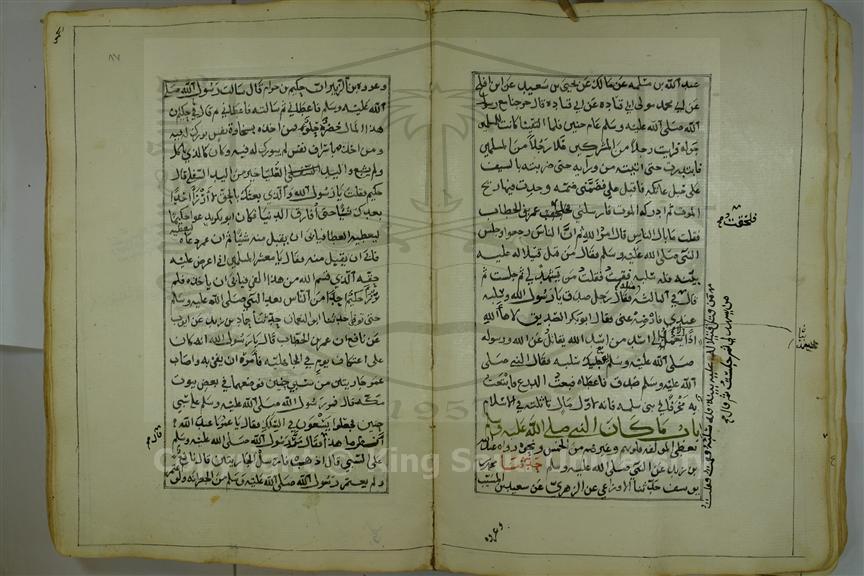 عبد الله بن مسلمة عن مالك عن يحيى بن سعيد عن ابن افلح
عن ابي محمد مولى ابي قتادة عن ابي قتادة قال خرجنا مع رسول
الله صلى الله عليه وسلم عام حنين فلما التقينا كانت للمسلمين
جولة فرايت رجلا من المشركين علا رجلا من المسلمين
فاستدرت حتى اتيته من ورايه حتى ضربته بالسيف
على حبل عاتقه فاقبل علي فضمني ضمة وجدت منها ريح
الموت ثم ادركه الموت فارسلني فلحقت عمر بن الخطاب
فقلت ما بال الناس قال امر الله ثم ان الناس رجعوا وجلس
النبي صلى الله عليه وسلم فقال من قتل قتيلا له عليه
بينة فله سلبه فقمت فقلت من يشهد لي ثم جلست ثم
قال الثالثة فقال رجل صدق يا رسول الله وسلبه
عندي فارضه عني فقال ابو بكر الصديق لاها الله
اذا يعمد الى اسد من اسد الله يقاتل عن الله ورسوله
صلى الله عليه وسلم يعطيك سلبه فقال النبي صلى
الله عليه وسلم صدق فاعطاه فبعت الدرع فابتعت
به مخرفا في بني سلمة فانه لاول مال تاثلته في الاسلام
باب ما كان النبي صلى الله عليه وسلم
يعطي المولفة قلوبهم وغيرهم من الخمس ونحوه رواه عبد الله
بن زيد عن النبي صلى الله عليه وسلم حدثنا محمد بن
يوسف حدثنا الاوزاعي عن الزهري عن سعيد بن المسيب
وعروة
فلحقت
وعروة بن الزبير ان حكيم بن حزام قال سالت رسول الله صلى
الله عليه وسلم فاعطاني ثم سالته فاعطاني ثم قال لي يا حكيم ان
هذا المال خضرة حلوة فمن اخذه بسخاوة نفس بورك له فيه
ومن اخذه باشراف نفس لم يبارك له فيه وكان كالذي ياكل
ولا يشبع واليد العليا خير من اليد السفلى قال
حكيم فقلت يا رسول الله والذي بعثك بالحق لا ارزا احدا
بعدك شيا حتى افارق الدنيا فكان ابو بكر يدعو حكيما
ليعطيه العطا فيابى ان يقبل منه شيا ثم ان عمر دعاه
فابى ان يقبل منه فقال يا معشر المسلمين اني اعرض عليه
حقه الذي قسم الله من هذا الفي فيابى ان ياخذه فلم
يرزا حكيم احدا من الناس بعد النبي صلى الله عليه وسلم
حتى توفي حدثنا ابو النعمان حدثنا حماد بن زيد عن ايوب
عن نافع ان عمر بن الخطاب قال يا رسول الله انه كان
علي اعتكاف يوم في الجاهلية فامره ان يفي به واصاب
عمر جاريتين من سبي حنين فوضعهما في بعض بيوت
مكة قال فمن رسول الله صلى الله عليه وسلم على سبي
حنين فجعلوا يسعون في السكك فقال عمر يا عبد الله
انظر ما هذا فقال من رسول الله صلى الله عليه وسلم
على السبي قال اذهب فارسل الجاريتين قال نافع
ولم يعتمر رسول الله صلى الله عليه وسلم من الجعرانة ولو
قال
Copyright © King Saud University
1957